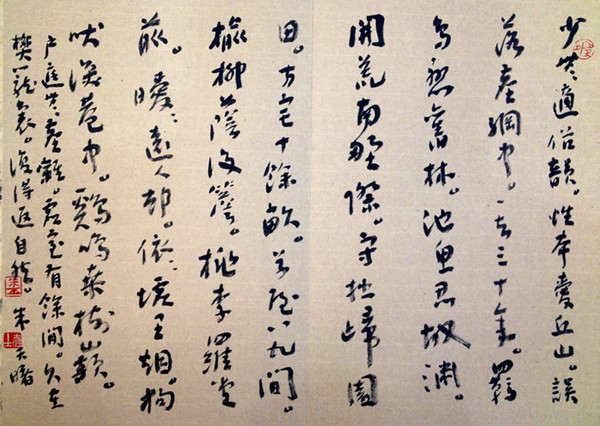 少無適俗韻。性本愛丘山。誤
落塵網中。一去三十年。羈
鳥戀舊林。池魚思故淵。
開荒南野際。守拙歸園
田。方宅十餘畝。草屋八九間。
榆柳蔭後簷。桃李羅堂
前。曖曖遠人村。依依墟里烟。狗
吠深巷中。雞鳴桑樹巔。
户庭無塵雜。虛室有餘閒。久在
樊籠裏。復得返自然。朱天曙